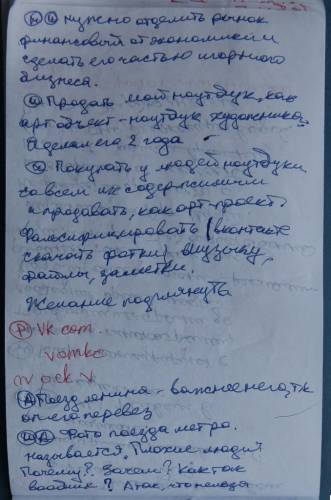 нужно отделить рынок
финансовый от экономики и
сделать его частью игорного
бизнеса.
Продать мой ноутбук, как
арт объект - ноутбук художника.
Я делал его 2 года
Покупать у людей ноутбуки
со всем их содержимым
и продавать, как арт-проект.
Фальсифицировать (вконтакте
скачать фотки) музычку,
файлы, заметки.
Желание подглянуть
Ⓟ Vk com.
Поезд Ленина - важнее него, тк
он его перевез
Фото поезда метро.
называется, Плохие люди?
Почему? Зачем? Как так
вообще? А так, что нельзя